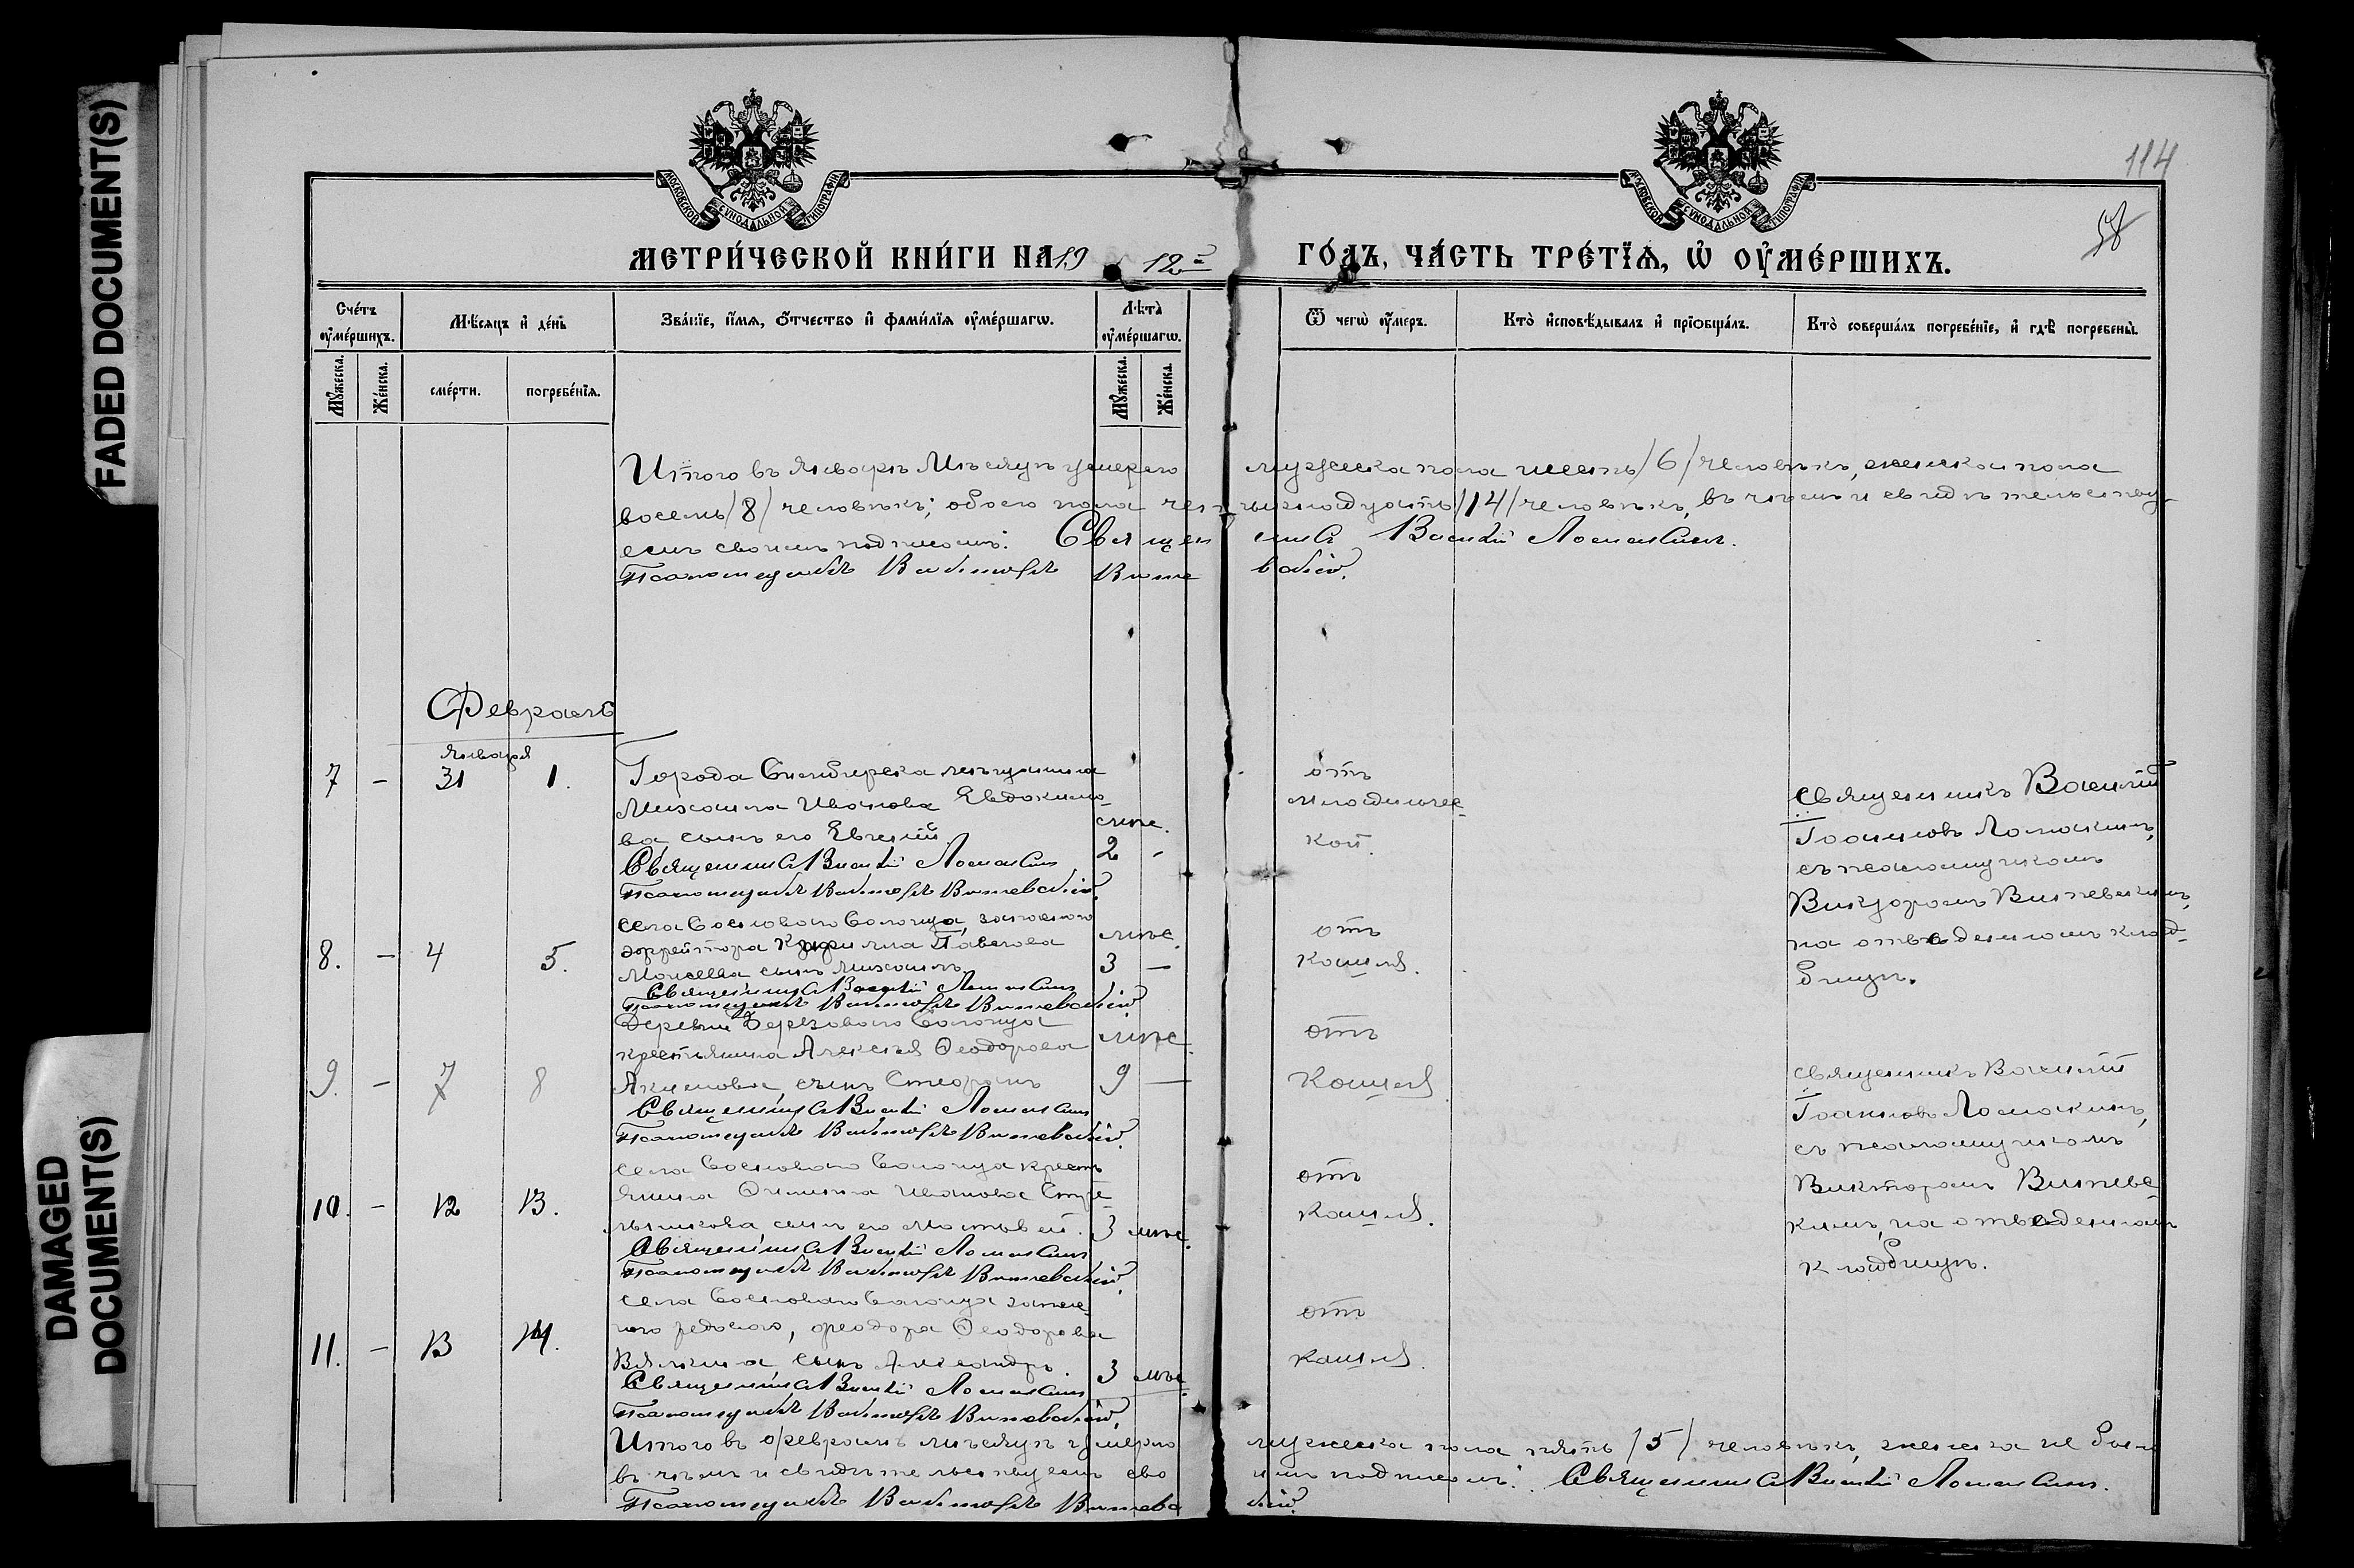 FADED DOCUMENT(S)
DAMAGED
DOCUMENT(S)
114
58
МОСКОВСКОЙ СѴНОДАЛЬНОЙ ТИПОГРАФІИ
МОСКОВСКОЙ СѴНОДАЛЬНОЙ ТИПОГРАФІИ
МЕТРИ́ЧЕСКОЙ КНИ́ГИ НА 1912й ГО́ДЪ, ЧА́СТЬ ТРЕ́ТЇѦ, Ѡ҆ ОУ҆МЕ́РШИХЪ.
Сче́тъ оу҆ме́ршихъ.
Мꙋ́жеска.
Же́нска.
Мѣ́сяцъ и҆ де́нь
сме́рти.
погребе́нїя.
Зва́нїе, и҆́мя, ѻ҆́тчество и҆ фами́лїя оу҆ме́ршагѡ.
Лѣ́та оу҆ме́ршагѡ.
Мꙋ́жеска.
Же́нска.
Ѿ чегѡ̀ оу҆́меръ.
Кто̀ и҆сповѣ́дывалъ и҆ прїѻбща́лъ.
Кто̀ соверша́лъ погребе́нїе, и҆ гдѣ̀ погребены̀.
Итого въ Январѣ Мѣсяцѣ умерло мужеска пола шесть /6/ человѣкъ, женска пола
восемь /8/ человѣкъ; обоего пола четырнадцать /14/ человѣкъ, въ чѣмъ и свидѣтельству-
емъ своимъ подписомъ: Священникъ Василій Ломакинъ.
Псаломщикъ Викторъ Вишневскій.
Февраль
7 - Января 31 1.
Города Симбирска мѣщанина
Михаила Иванова Евдокимо-
ва сынъ его Евгеній
мѣс. 2 -
Священникъ Василій Ломакинъ
Псаломщикъ Викторъ Вишневскій.
отъ
младенчес-
кой.
Священникъ Василій
Іоанновъ Ломакинъ,
съ псаломщикомъ
Викторомъ Вишневскимъ,
на отведенномъ клад-
бищѣ.
8. - 4 5.
Села Сосноваго Солонца, запаснаго
эфрейтора Кирилла Павлова
Моисеева сынъ Михаилъ
мѣс. 3 -
Священникъ Василій Ломакинъ
Псаломщикъ Викторъ Вишневскій
отъ
кашля.
9. - 7 8
Деревни Березоваго Солонца
крестьянина Алексѣя Ѳеодорова
Акимова сынъ Стефанъ
мѣс. 9 -
Священникъ Василій Ломакинъ
Псаломщикъ Викторъ Вишневскій.
отъ
Кашля
Священникъ Василій
Іоанновъ Ломакинъ,
съ псаломщикомъ
Викторомъ Вишневс-
кимъ, на отведенномъ
кладбищѣ.
10. - 12 13.
Села Сосноваго Солонца кресть
янина Филиппа Иванова
сынъ его Матвей. 3 мѣс.
Священникъ Василій Ломакинъ
Псаломщикъ Викторъ Вишневскій.
отъ
кашля.
11. - 13 14.
Села Сосноваго Солонца запас-
наго рядоваго, Ѳеодора Ѳеодорова
сынъ Александръ 3 мѣс.
Священникъ Василій Ломакинъ
Псаломщикъ Викторъ Вишневскій.
отъ
кашля.
Итого въ февралѣ мѣсяцѣ умерло мужеска пола пять /5/ человѣкъ, женска не было
въ чѣмъ и свидѣтельствуемъ своимъ подписомъ: Священникъ Василій Ломакинъ.
Псаломщикъ Викторъ Вишневскій.